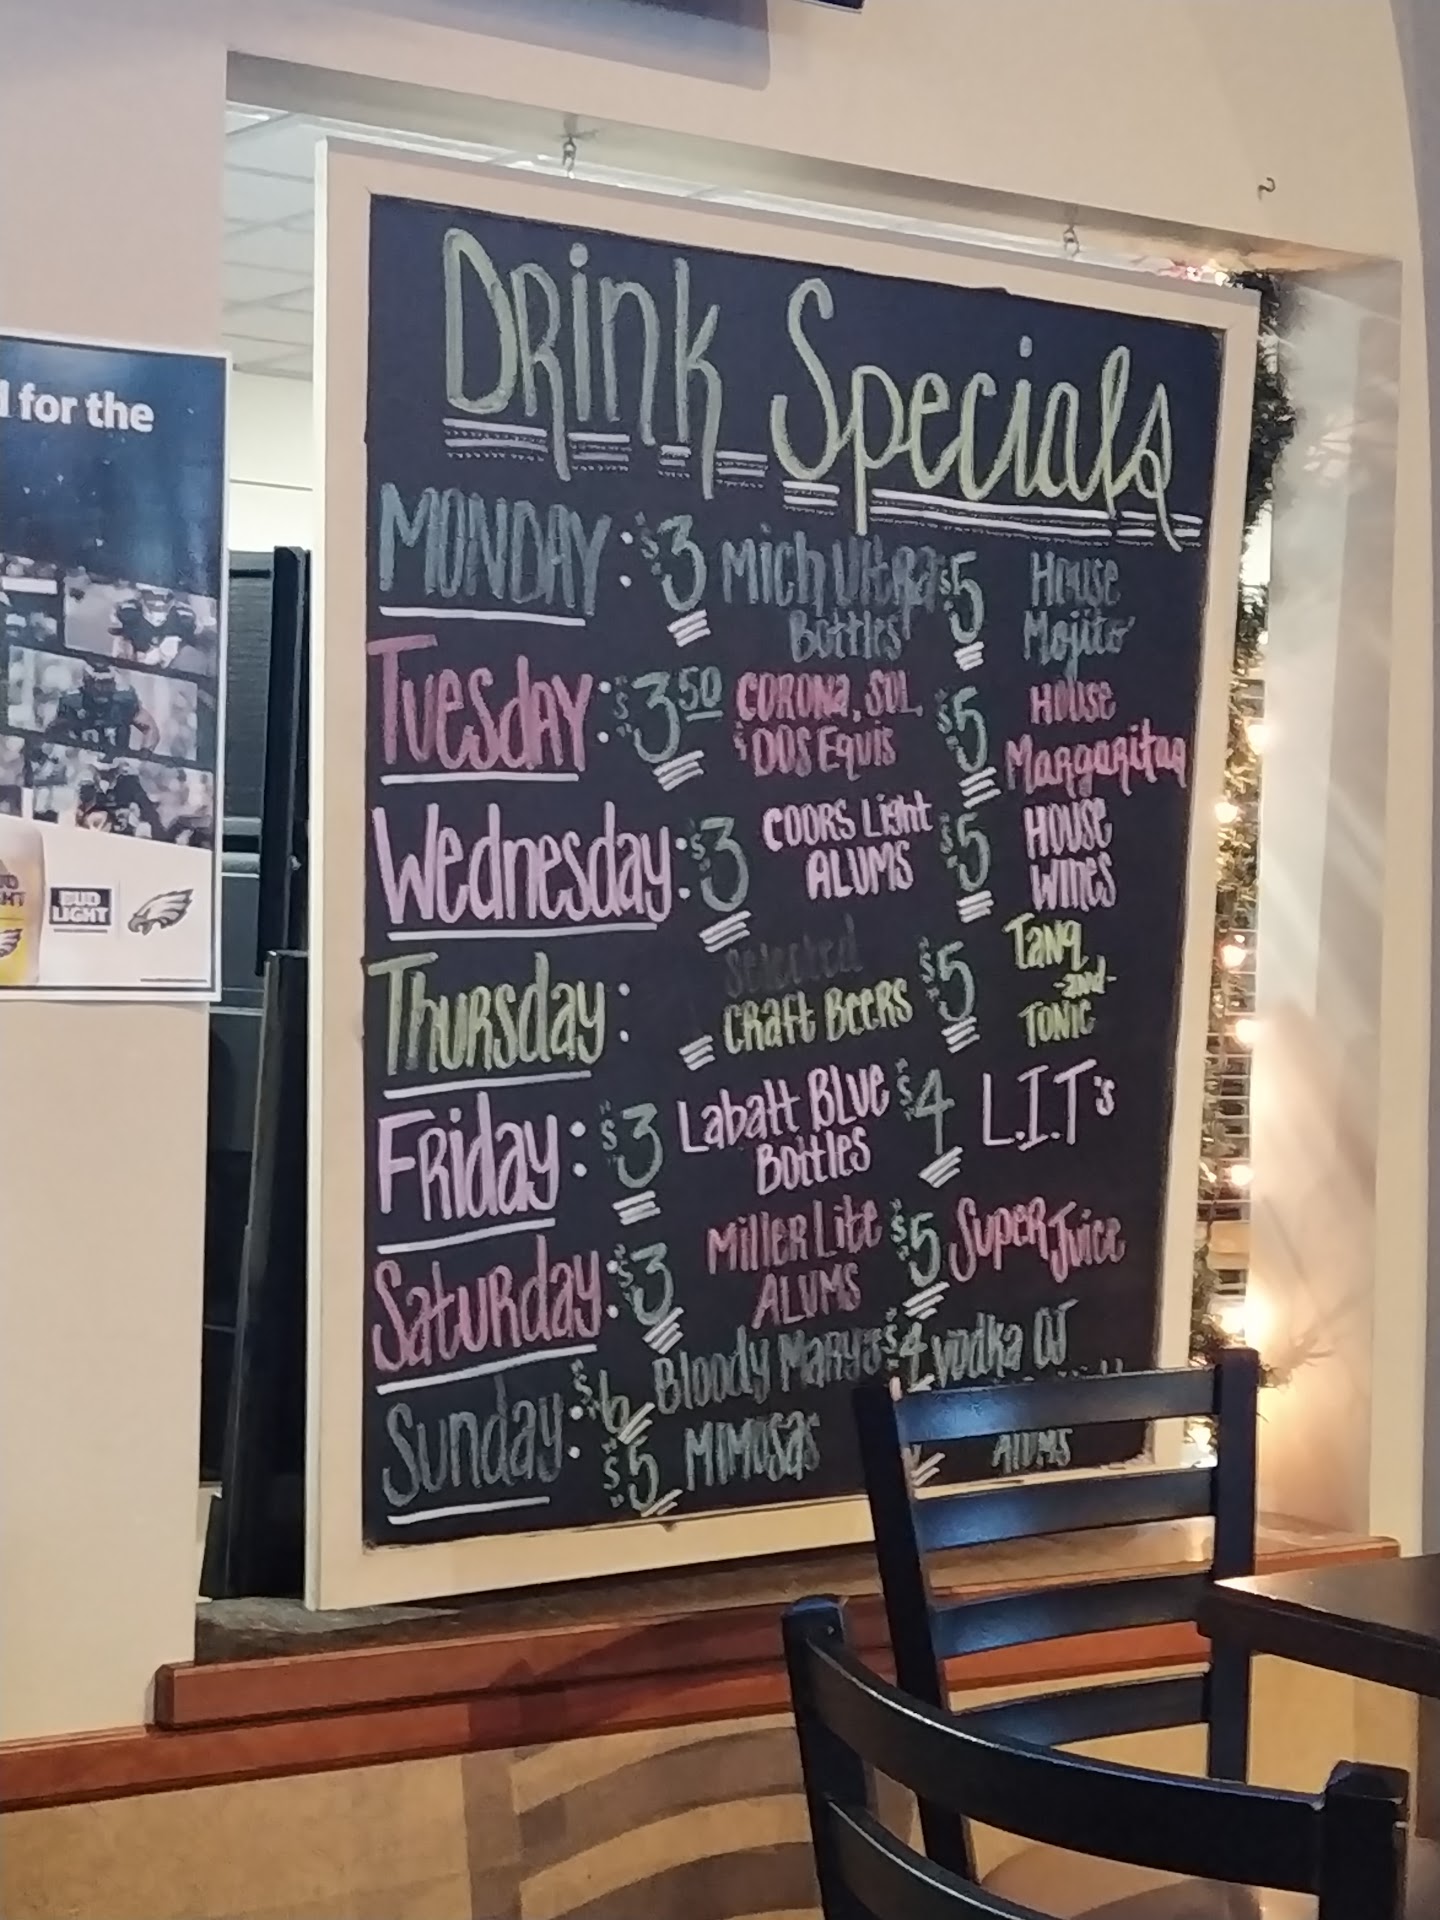 l for the
BUD
LIGHT
Drink Specials
Monday: $3 Mich Ultra $5 House
Bottles Mojito
Tuesday: $3.50 Corona, Sol, $5 House
& Dos Equis Margaritas
Wednesday: $3 Coors Light $5 House
Alums Wines
Thursday: Selected $5 Tanq
Craft Beers -and-
Tonic
Friday: $3 Labatt Blue $4 L.I.T's
Bottles
Saturday: $3 Miller Lite $5 Super Juice
Alums
Sunday: $6 Bloody Marys $4 Vodka OJ
$5 Mimosas Alums